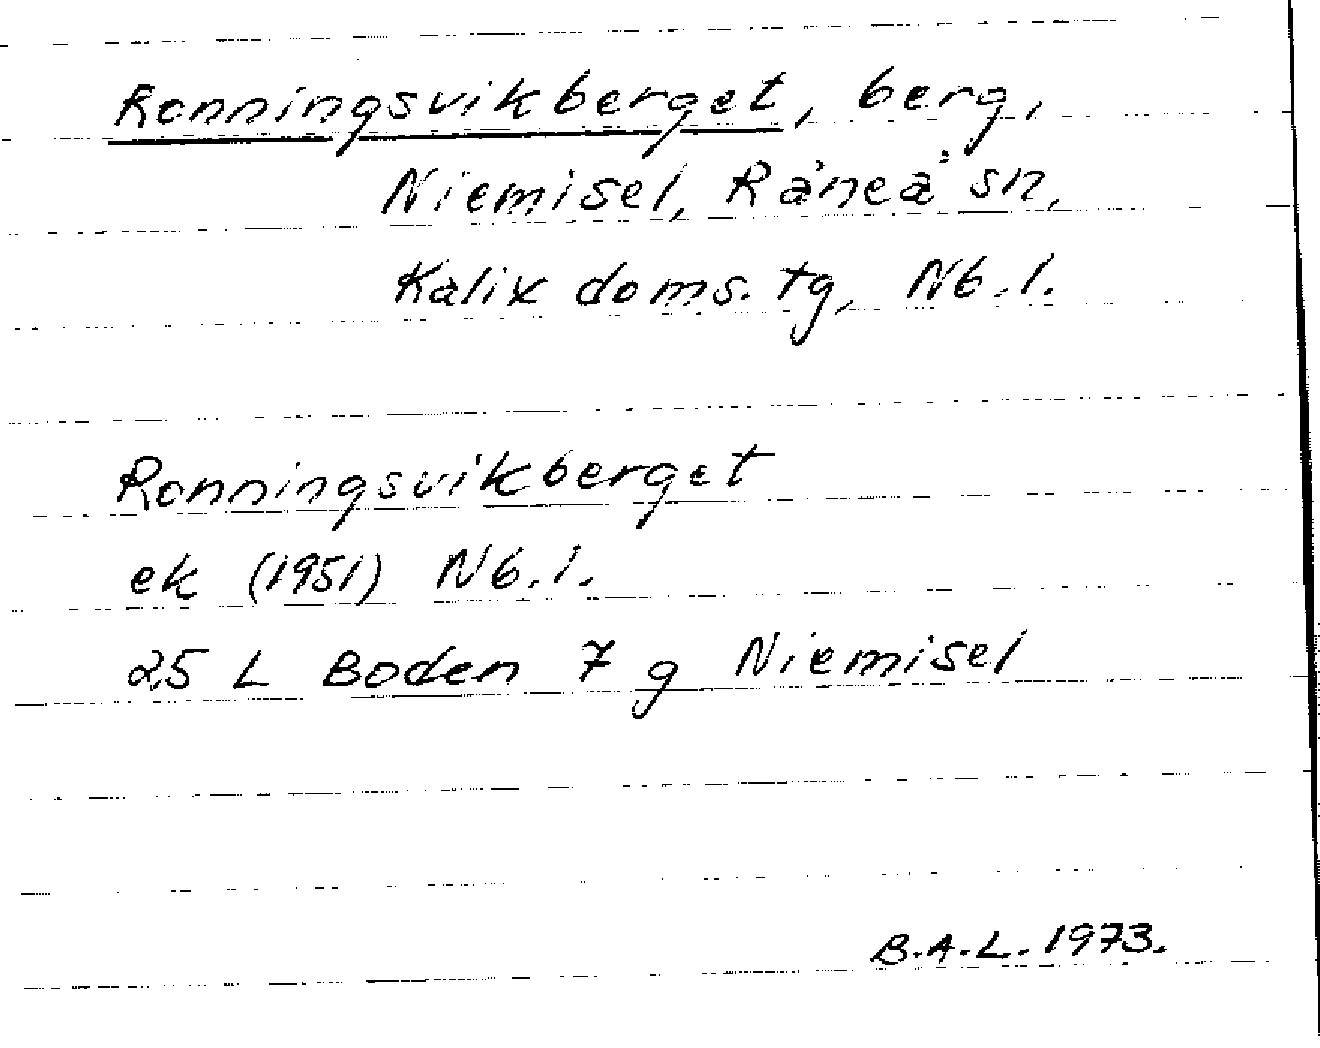 Ronningsvikberget, berg,
Niemisel, Råneå sn,
Kalix doms. tg, Nb.l.
Ronningsvikberget
ek (1951) Nb.l.
25 L Boden 7 g Niemisel
B.A.L. 1973.